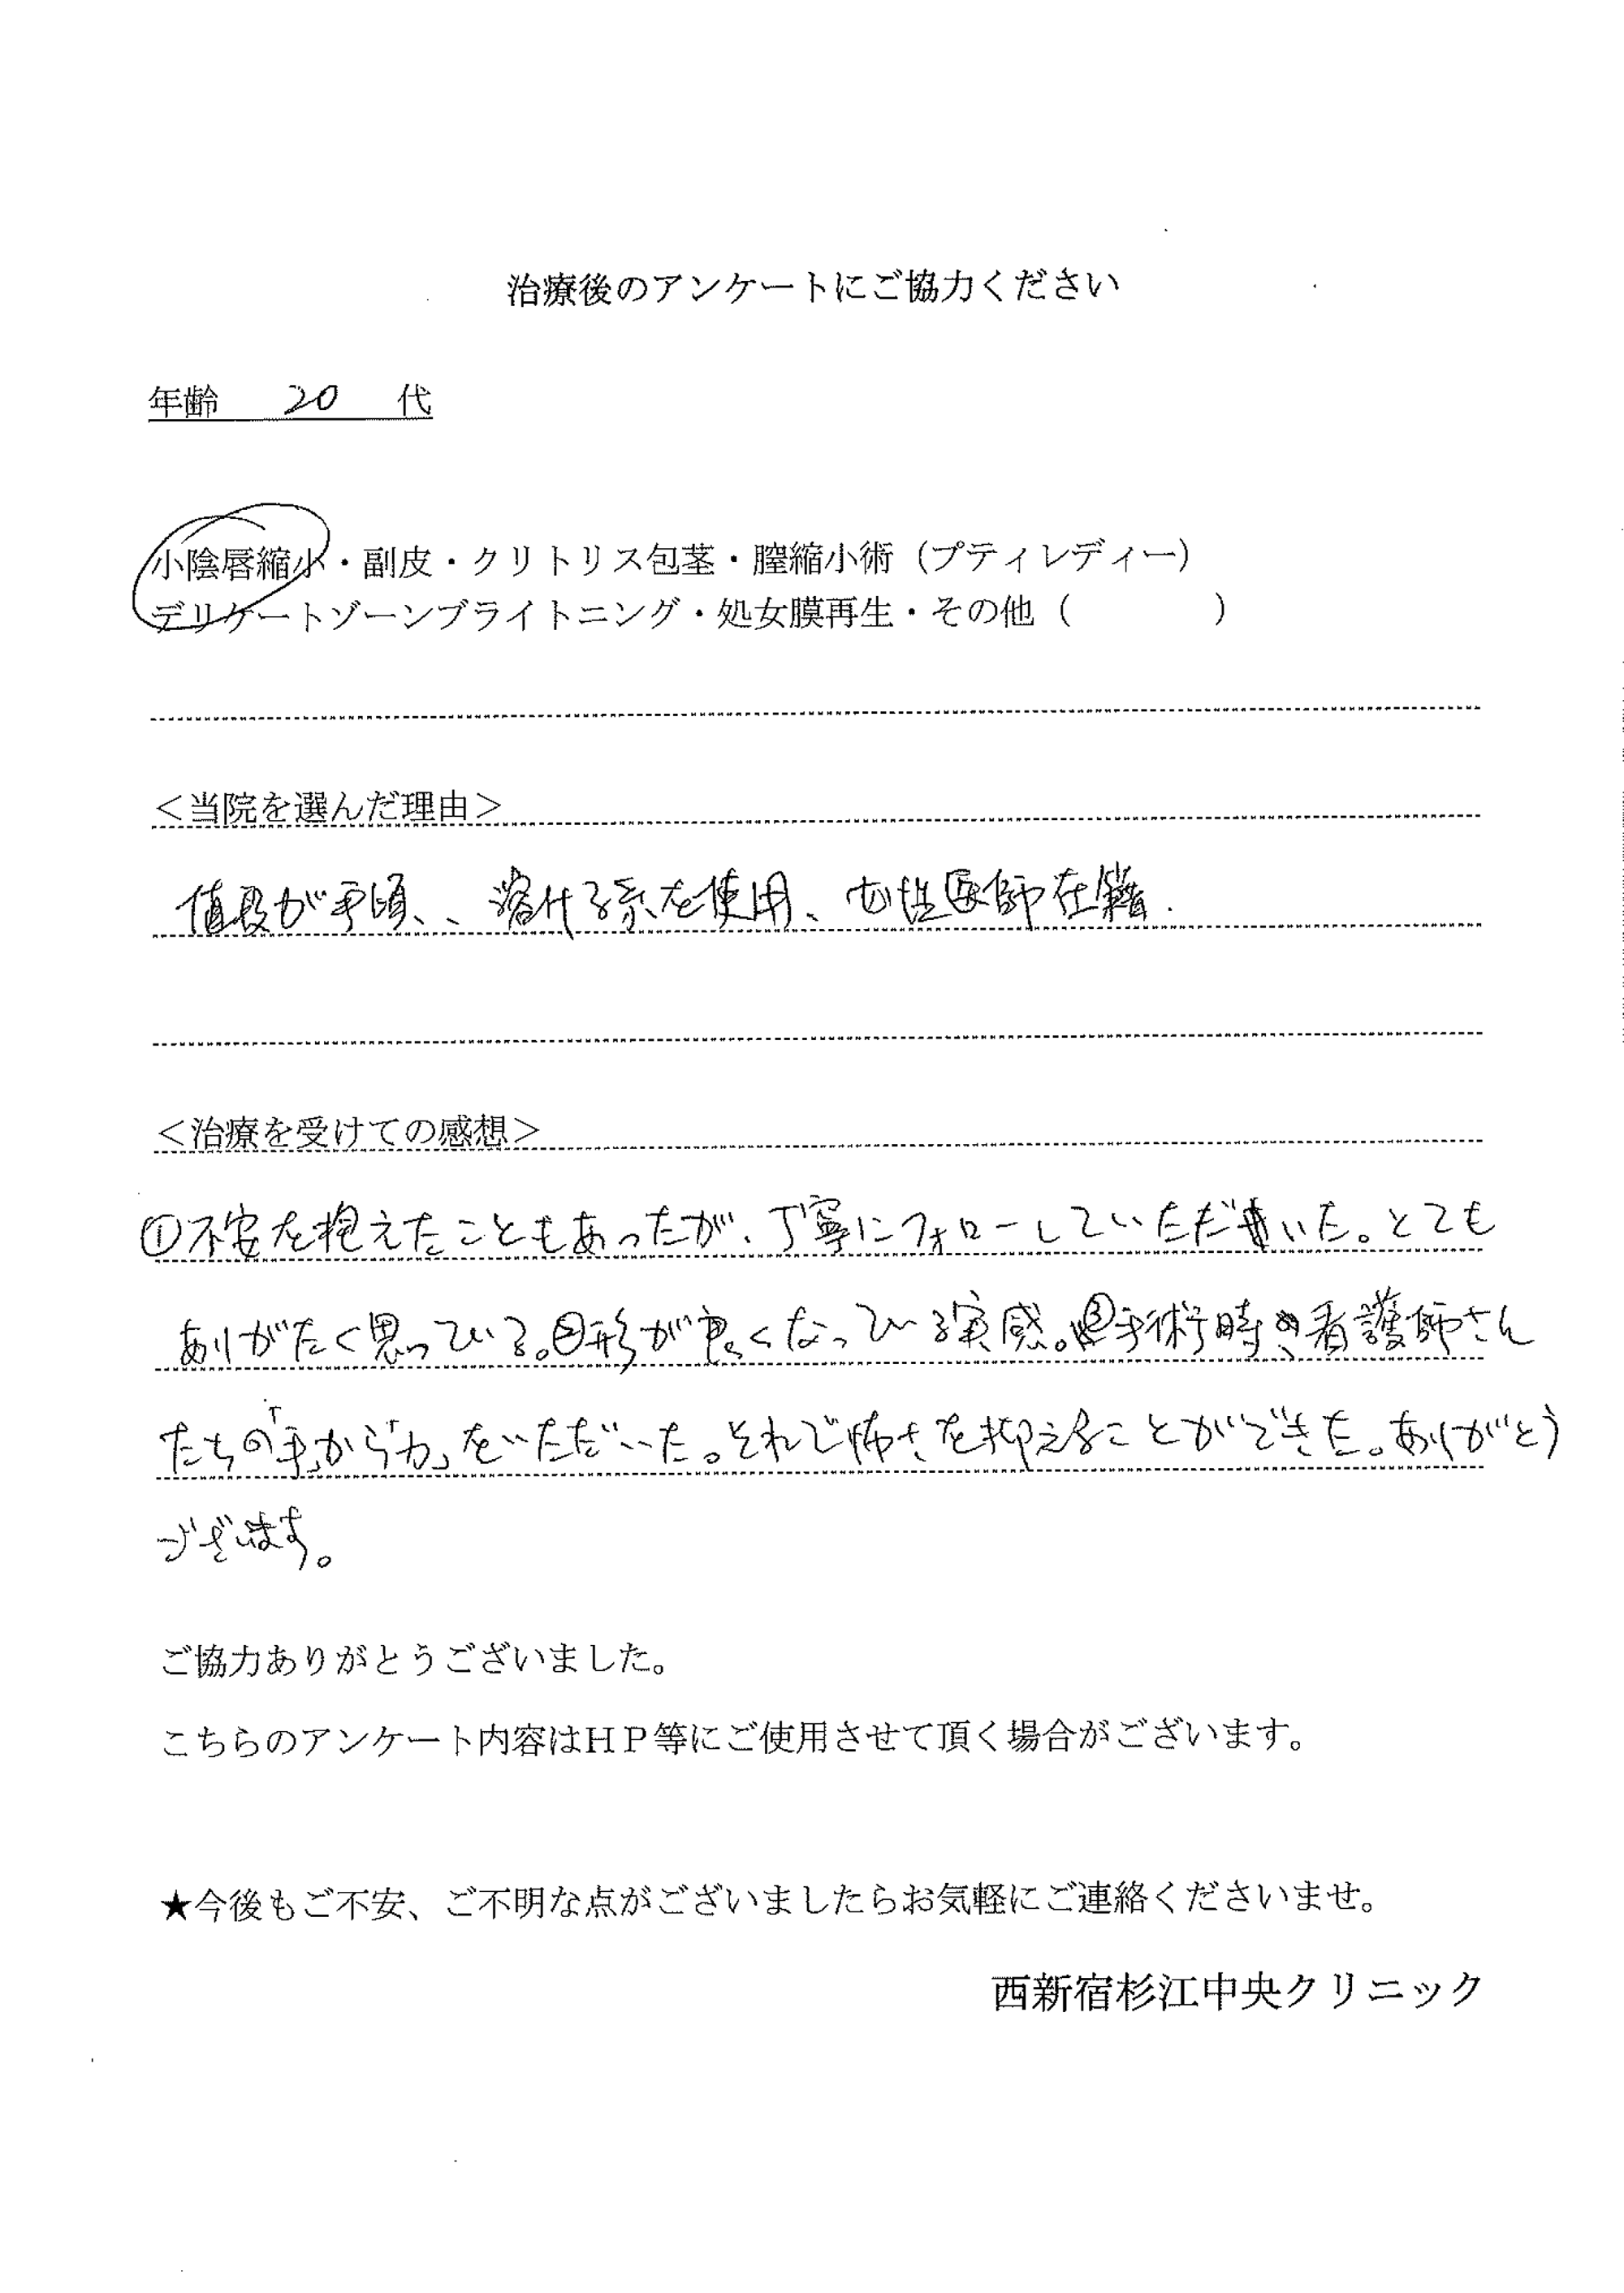 治療後のアンケートにご協力ください
年齢 20 代
小陰唇縮小・副皮・クリトリス包茎・膣縮小術（プティレディー）
デリケートゾーンブライトニング・処女膜再生・その他（ ）
＜当院を選んだ理由＞
値段が手頃、、溶ける糸を使用、女性医師在籍.
＜治療を受けての感想＞
①不安を抱えたこともあったが、丁寧にフォローしていただいた。とても
ありがたく思っている。②形が良くなっている実感。③手術時、看護師さん
たちの「手」から「力」をいただいた。それで怖さを抑えることができた。ありがとう
ございます。
ご協力ありがとうございました。
こちらのアンケート内容はＨＰ等にご使用させて頂く場合がございます。
★今後もご不安、ご不明な点がございましたらお気軽にご連絡くださいませ。
西新宿杉江中央クリニック